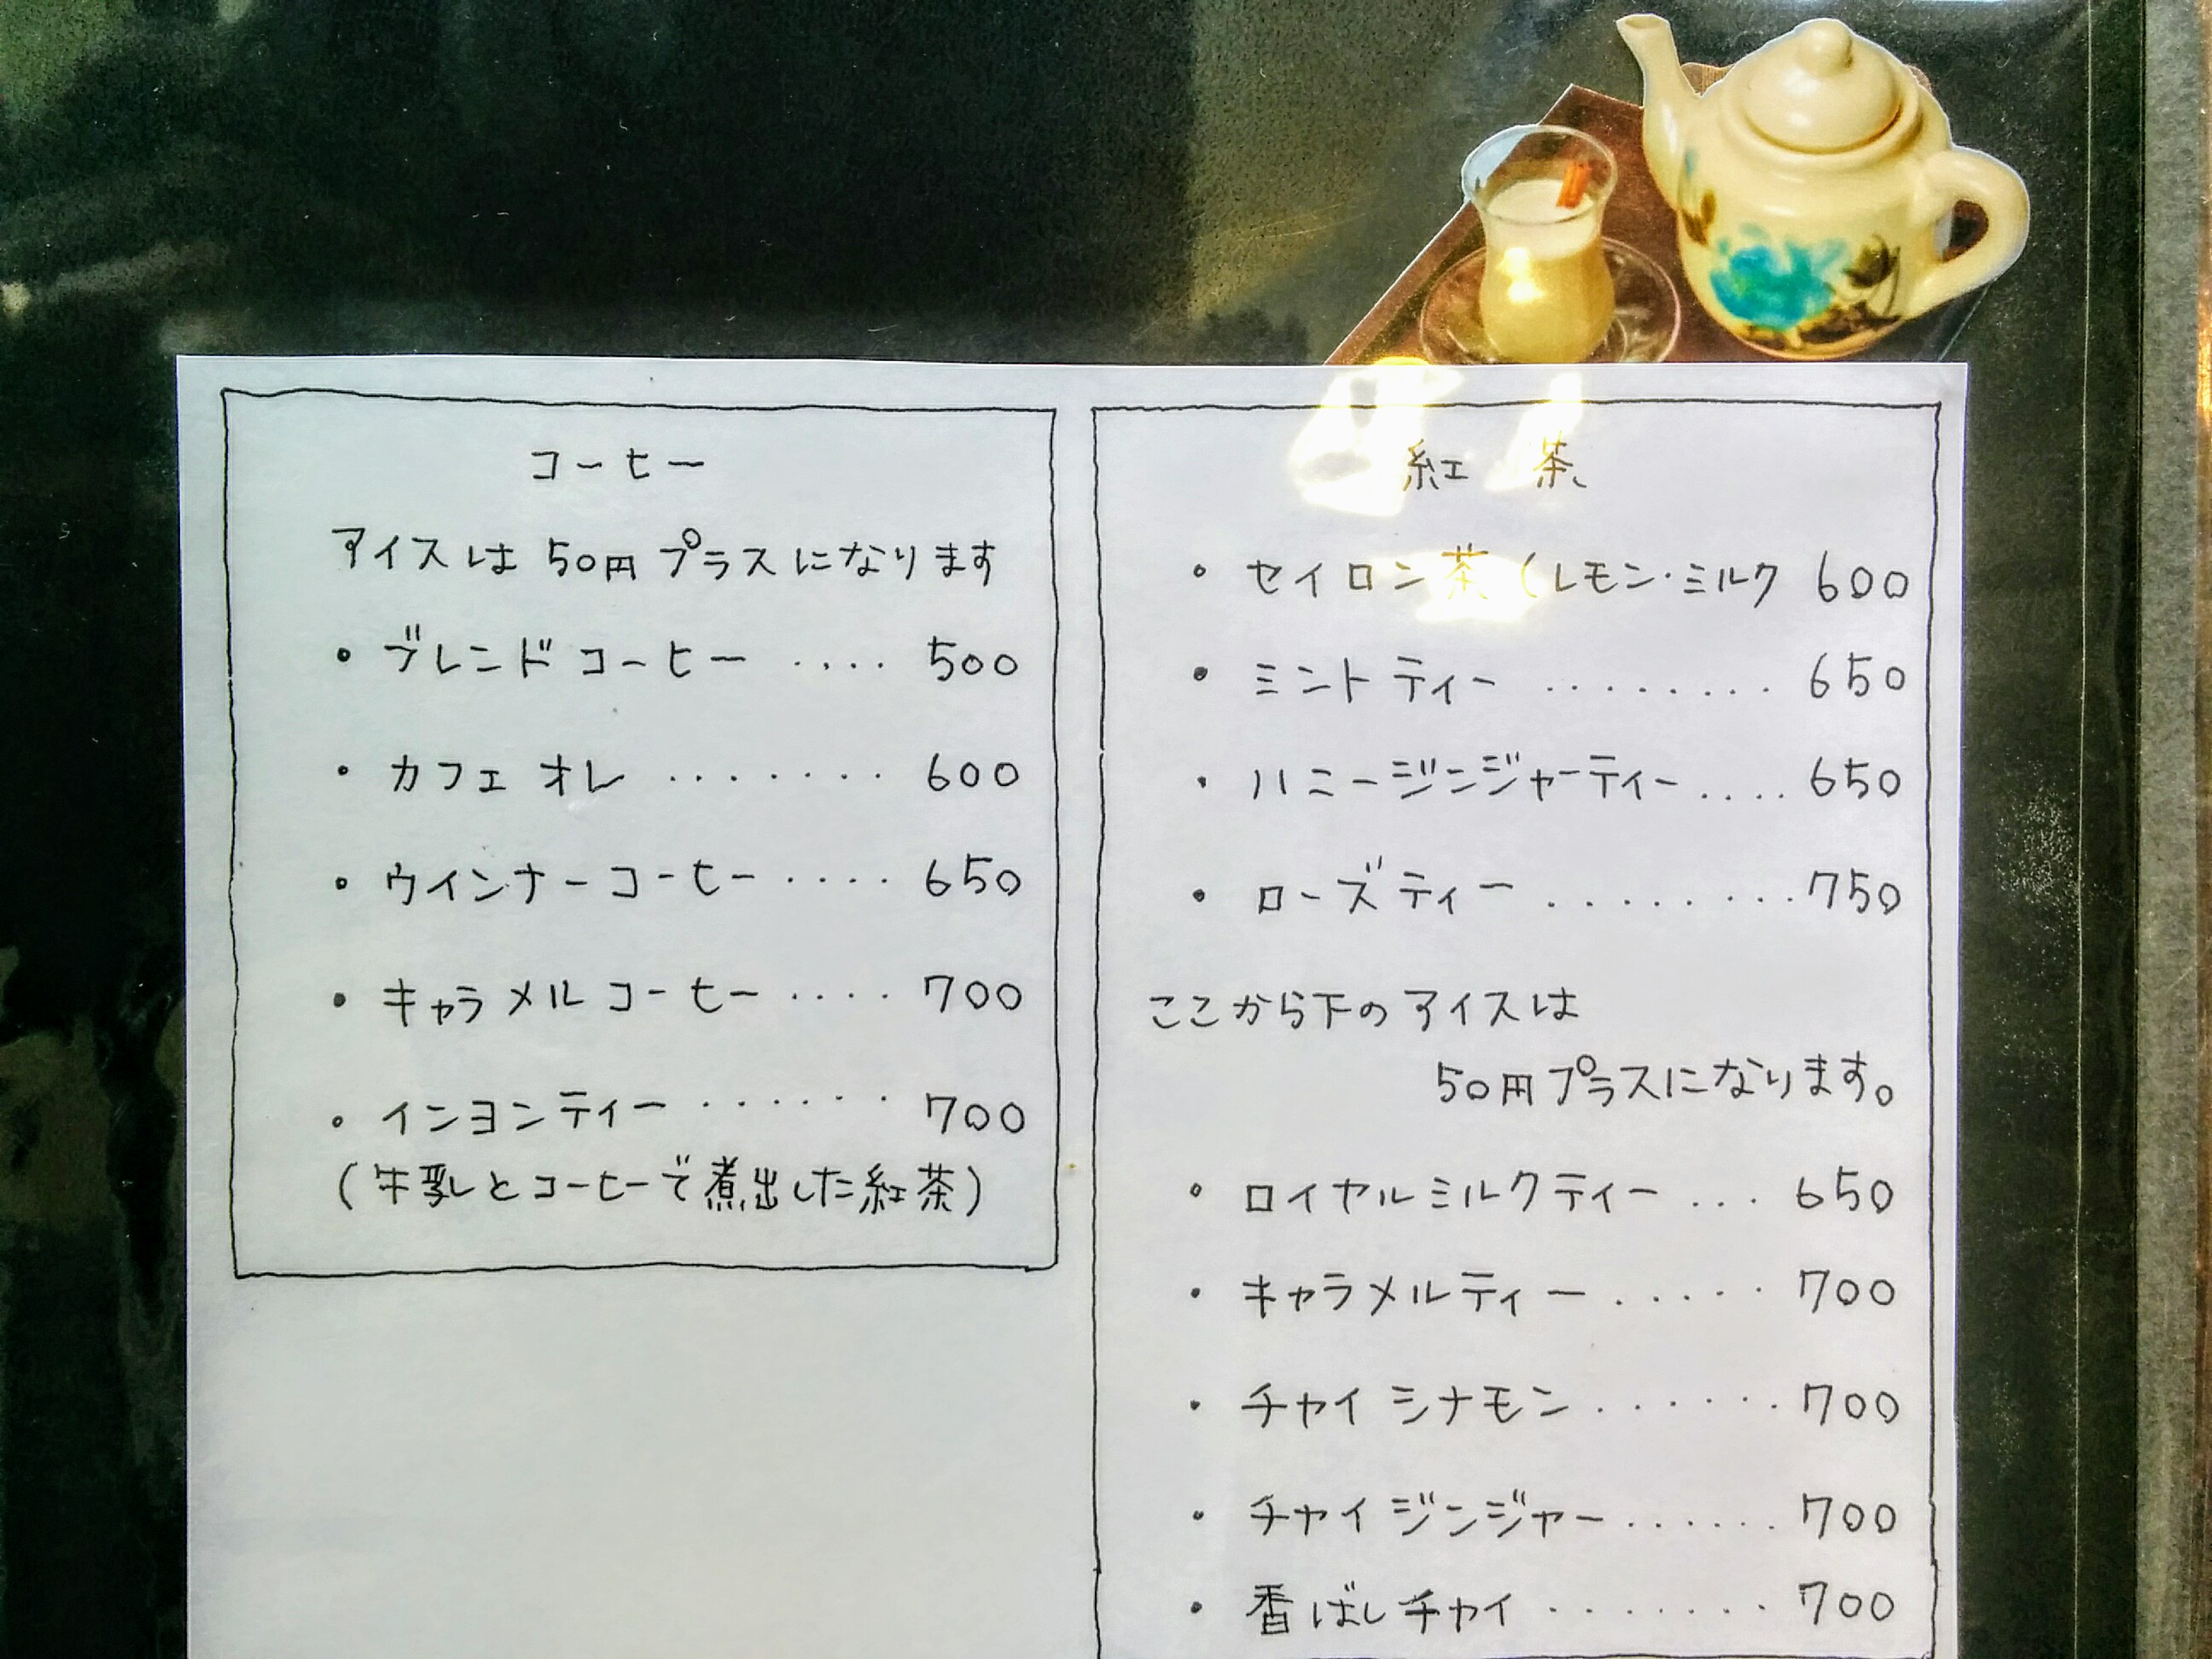 コーヒー
アイスは 50円 プラスになります
・ ブレンド コーヒー ‥‥ 500
・ カフェ オレ ‥‥‥‥ 600
・ ウインナーコーヒー ‥‥ 650
・ キャラメル コーヒー ‥‥ 700
・ インヨンティー ‥‥‥ 700
(牛乳とコーヒーで煮出した紅茶)
紅 茶
・ セイロン茶 (レモン・ミルク 600
・ ミント ティー ‥‥‥‥ 650
・ ハニージンジャーティー ‥‥ 650
・ ローズ ティー ‥‥‥‥‥ 750
ここから下の アイスは
50円プラスになります。
・ ロイヤルミルクティー … 650
・ キャラメルティー ‥‥‥ 700
・ チャイ シナモン ‥‥‥ 700
・ チャイ ジンジャー ‥‥‥ 700
・ 香ばし チャイ ‥‥‥‥ 700